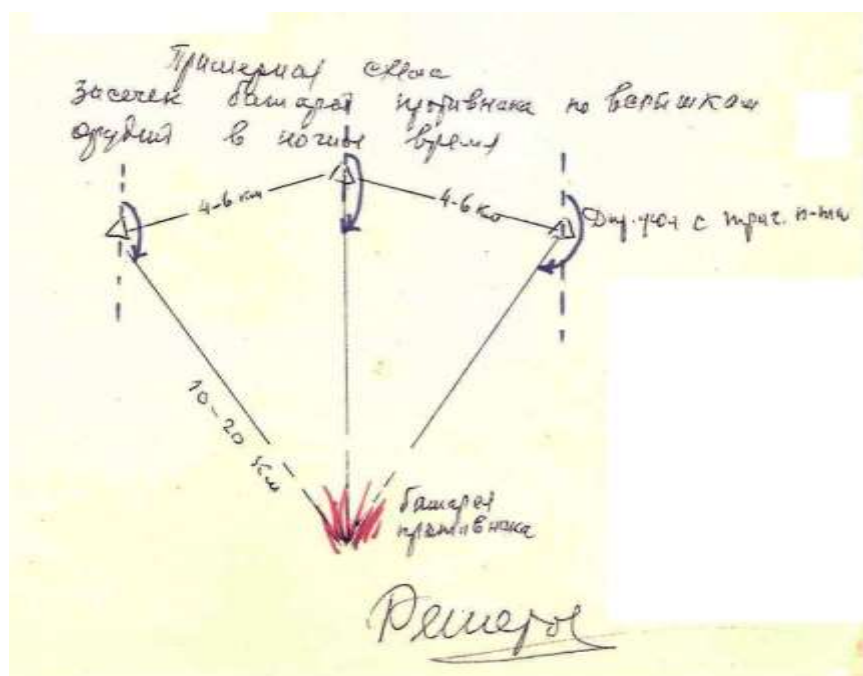 Примерная схема
Засечек батарей противника по вспышкам
орудий в ночное время
4-6 км
4-6 км
Дир. угол с триг. п-та
10-20 км
батарея
противника